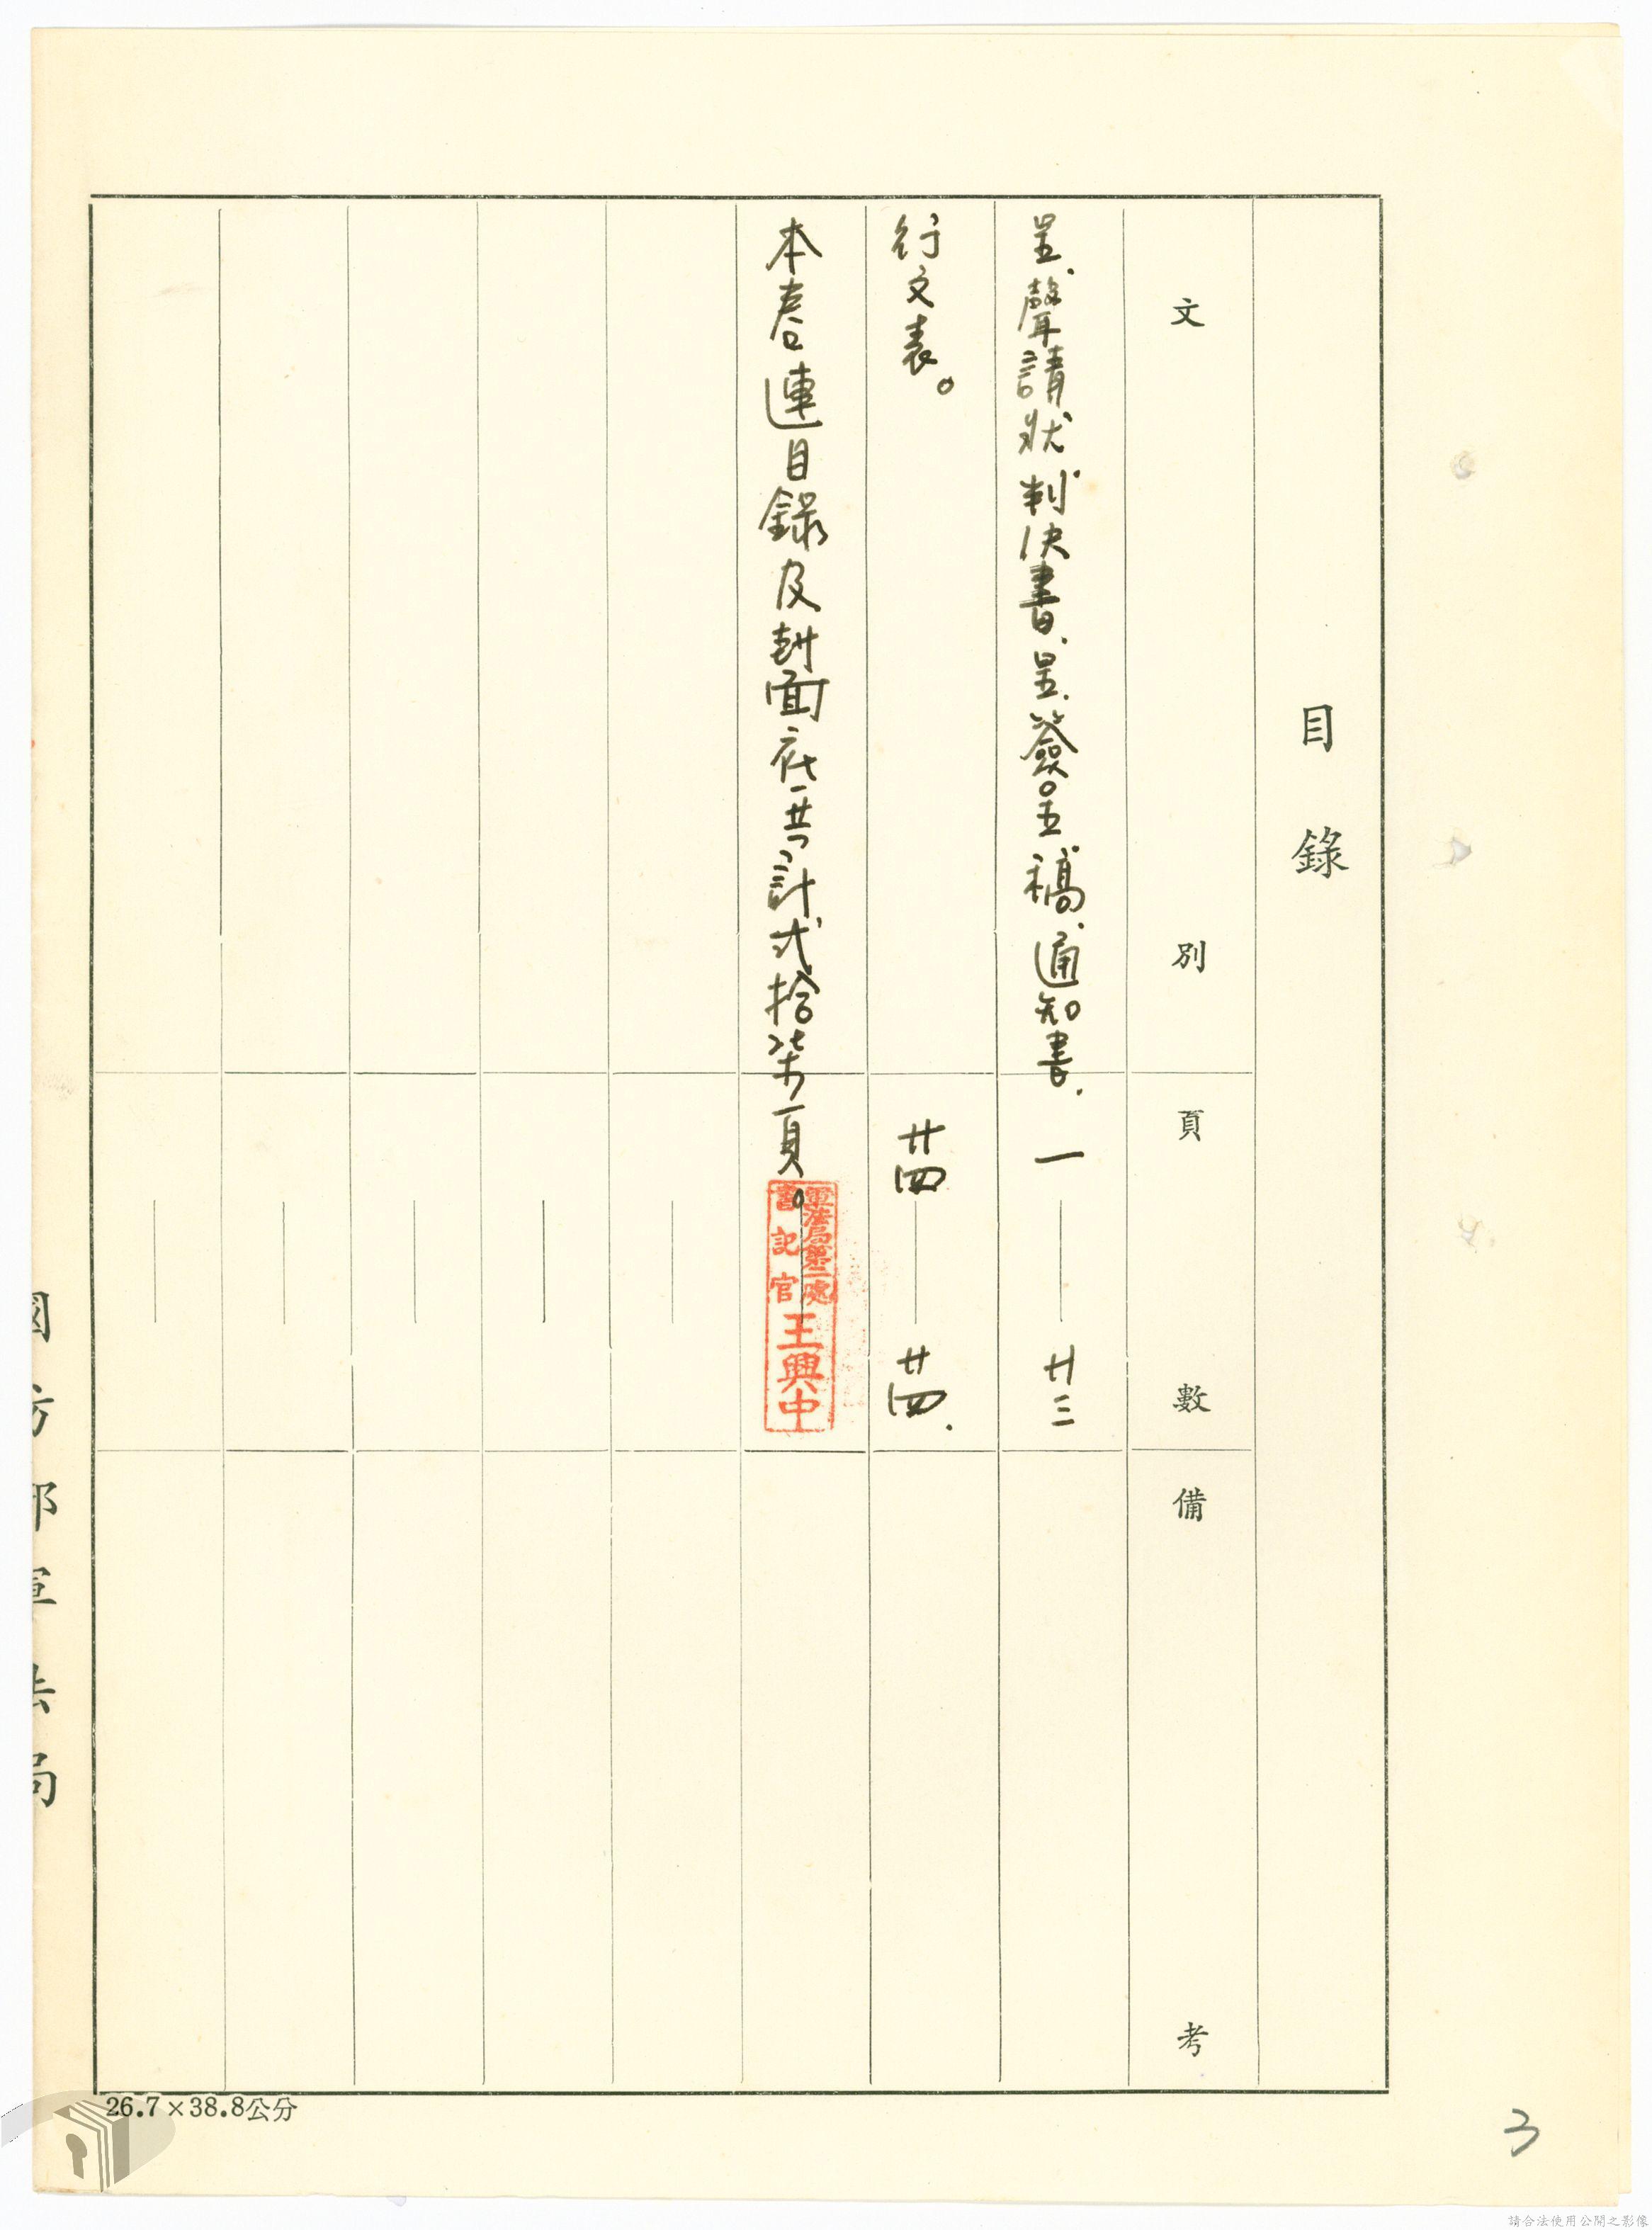 目錄
文別 頁數 備考
呈、聲請狀、判決書、呈、簽呈、稿、通知書、 一 — 廿三
行文表。 廿四 — 廿四.
本卷連目錄及封面底共計弍拾柒頁。
軍法局第二處
書記官
王興中
國防部軍法局
26.7×38.8公分
3
請合法使用公開之影像